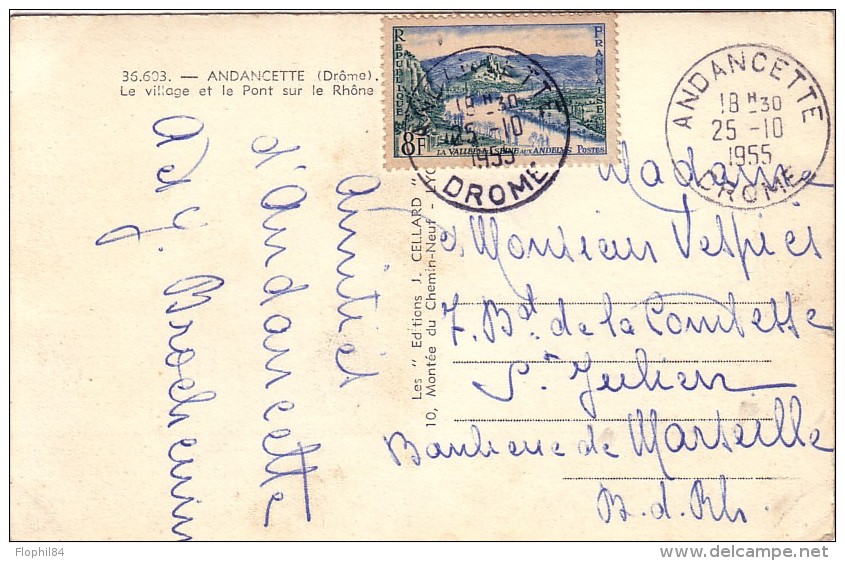 36.603. — ANDANCETTE (Drôme).
Le village et le Pont sur le Rhône
REPUBLIQUE
FRANÇAISE
8F
LA VALLEE DE LA SEINE AUX ANDELYS POSTES
ANDANCETTE
18 H 30
25 - 10
1955
DROME
ANDANCETTE
18 H 30
25 - 10
1955
DROME
Les " Editions J. CELLARD "
10, Montée du Chemin-Neuf -
Amitiés
d'Andancette
A et J. Brochenin
Madame
et Monsieur Vespiès
7. Bd. de la Comtesse
St Julien
Banlieue de Marseille
B. d. Rh.
Flophil84
delcampe.net